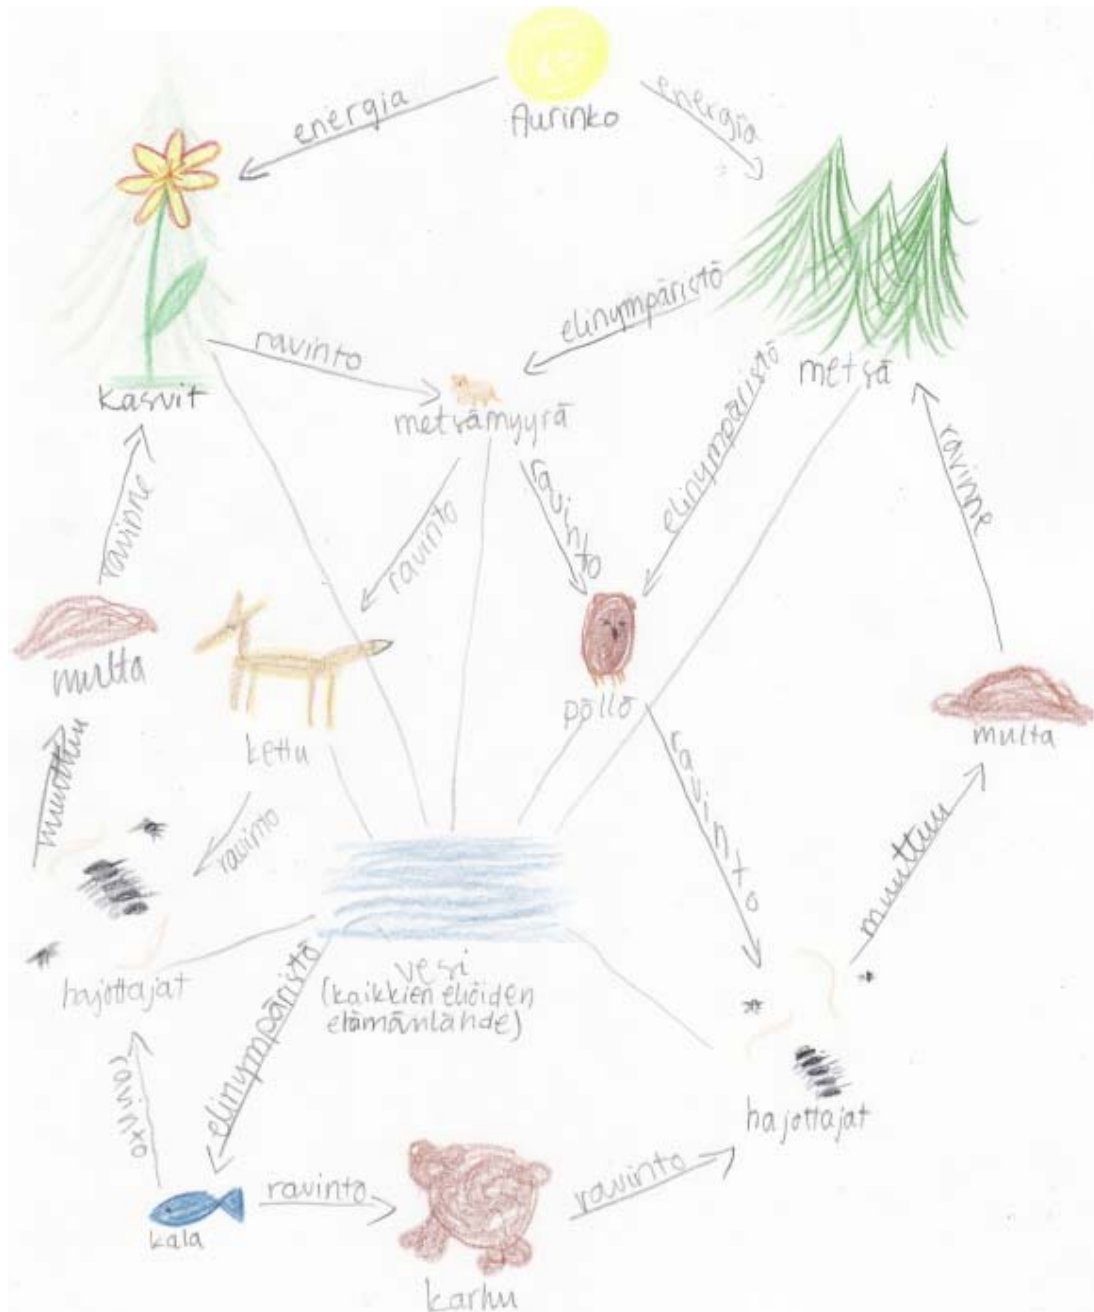 Aurinko
energia
energia
kasvit
metsä
ravinto
elinympäristö
elinympäristö
metsämyyrä
ravinne
ravinto
ravinto
ravinne
multa
kettu
pöllö
multa
muuttuu
ravinto
ravinto
muuttuu
hajottajat
vesi
(kaikkien eliöiden
elämänlähde)
elinympäristö
ravinto
hajottajat
kala
ravinto
karhu
ravinto